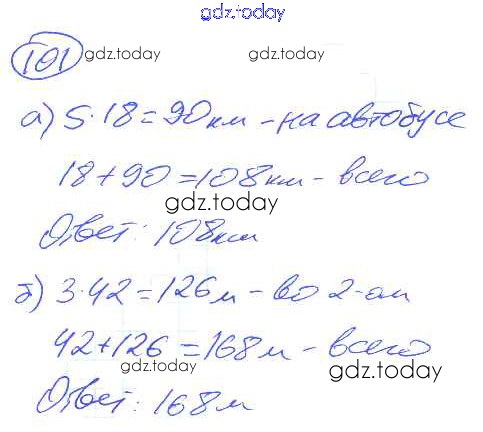 gdz.today
101 gdz.today gdz.today
а) 5·18=90км - на автобусе
18+90=108км - всего
gdz.today
Ответ: 108км
б) 3·42=126м - во 2-ом
42+126=168м - всего
gdz.today gdz.today
Ответ: 168м